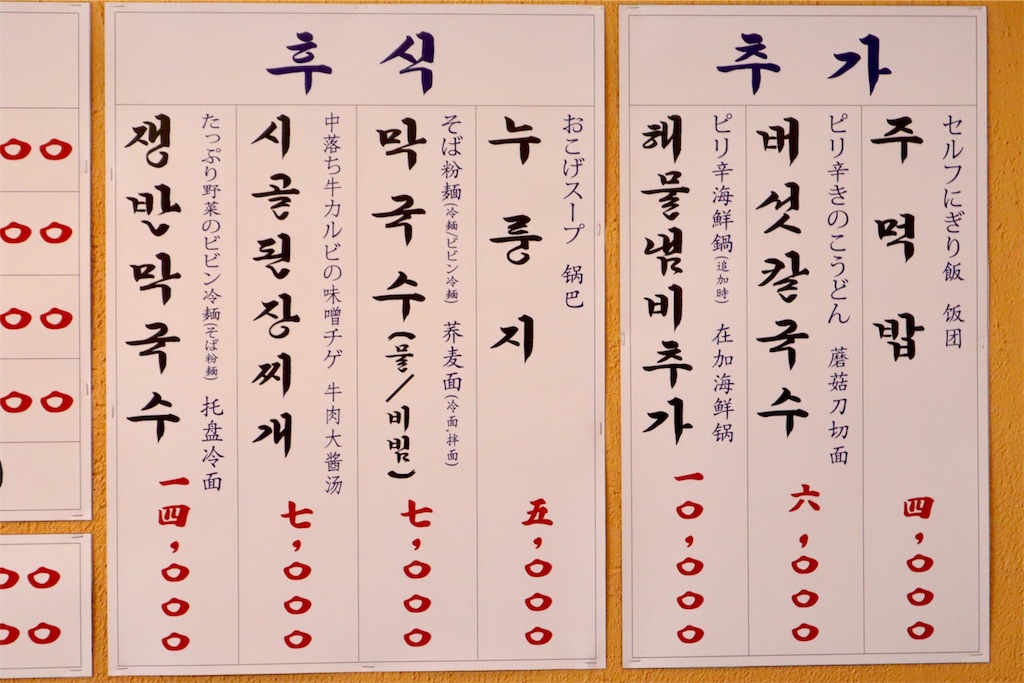 추가
セルフにぎり飯 饭团
주먹밥
四,000
ピリ辛きのこうどん 蘑菇刀切面
버섯칼국수
六,000
ピリ辛海鮮鍋(追加時) 在加海鲜锅
해물냄비추가
一0,000
후식
おこげスープ 锅巴
누룽지
五,000
そば粉麺(冷麺/ビビン冷麺) 荞麦面(冷面,拌面)
막국수(물/비빔)
七,000
中落ち牛カルビの味噌チゲ 牛肉大酱汤
시골된장찌개
七,000
たっぷり野菜のビビン冷麺(そば粉麺) 托盘冷面
쟁반막국수
一四,000
00
00
00
00
00
00